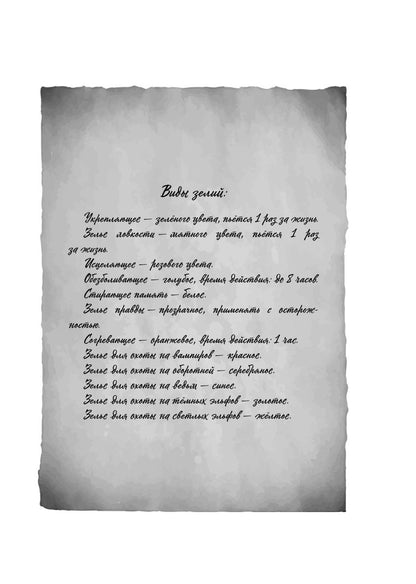 Виды зелий:
Укрепляющее — зелёного цвета, пьётся 1 раз за жизнь.
Зелье ловкости — мятного цвета, пьётся 1 раз
за жизнь.
Исцеляющее — розового цвета.
Обезболивающее — голубое, время действия: до 8 часов.
Стирающее память — белое.
Зелье правды — прозрачное, применять с осторож-
ностью.
Согревающее — оранжевое, время действия: 1 час.
Зелье для охоты на вампиров — красное.
Зелье для охоты на оборотней — серебряное.
Зелье для охоты на ведьм — синее.
Зелье для охоты на тёмных эльфов — золотое.
Зелье для охоты на светлых эльфов — жёлтое.